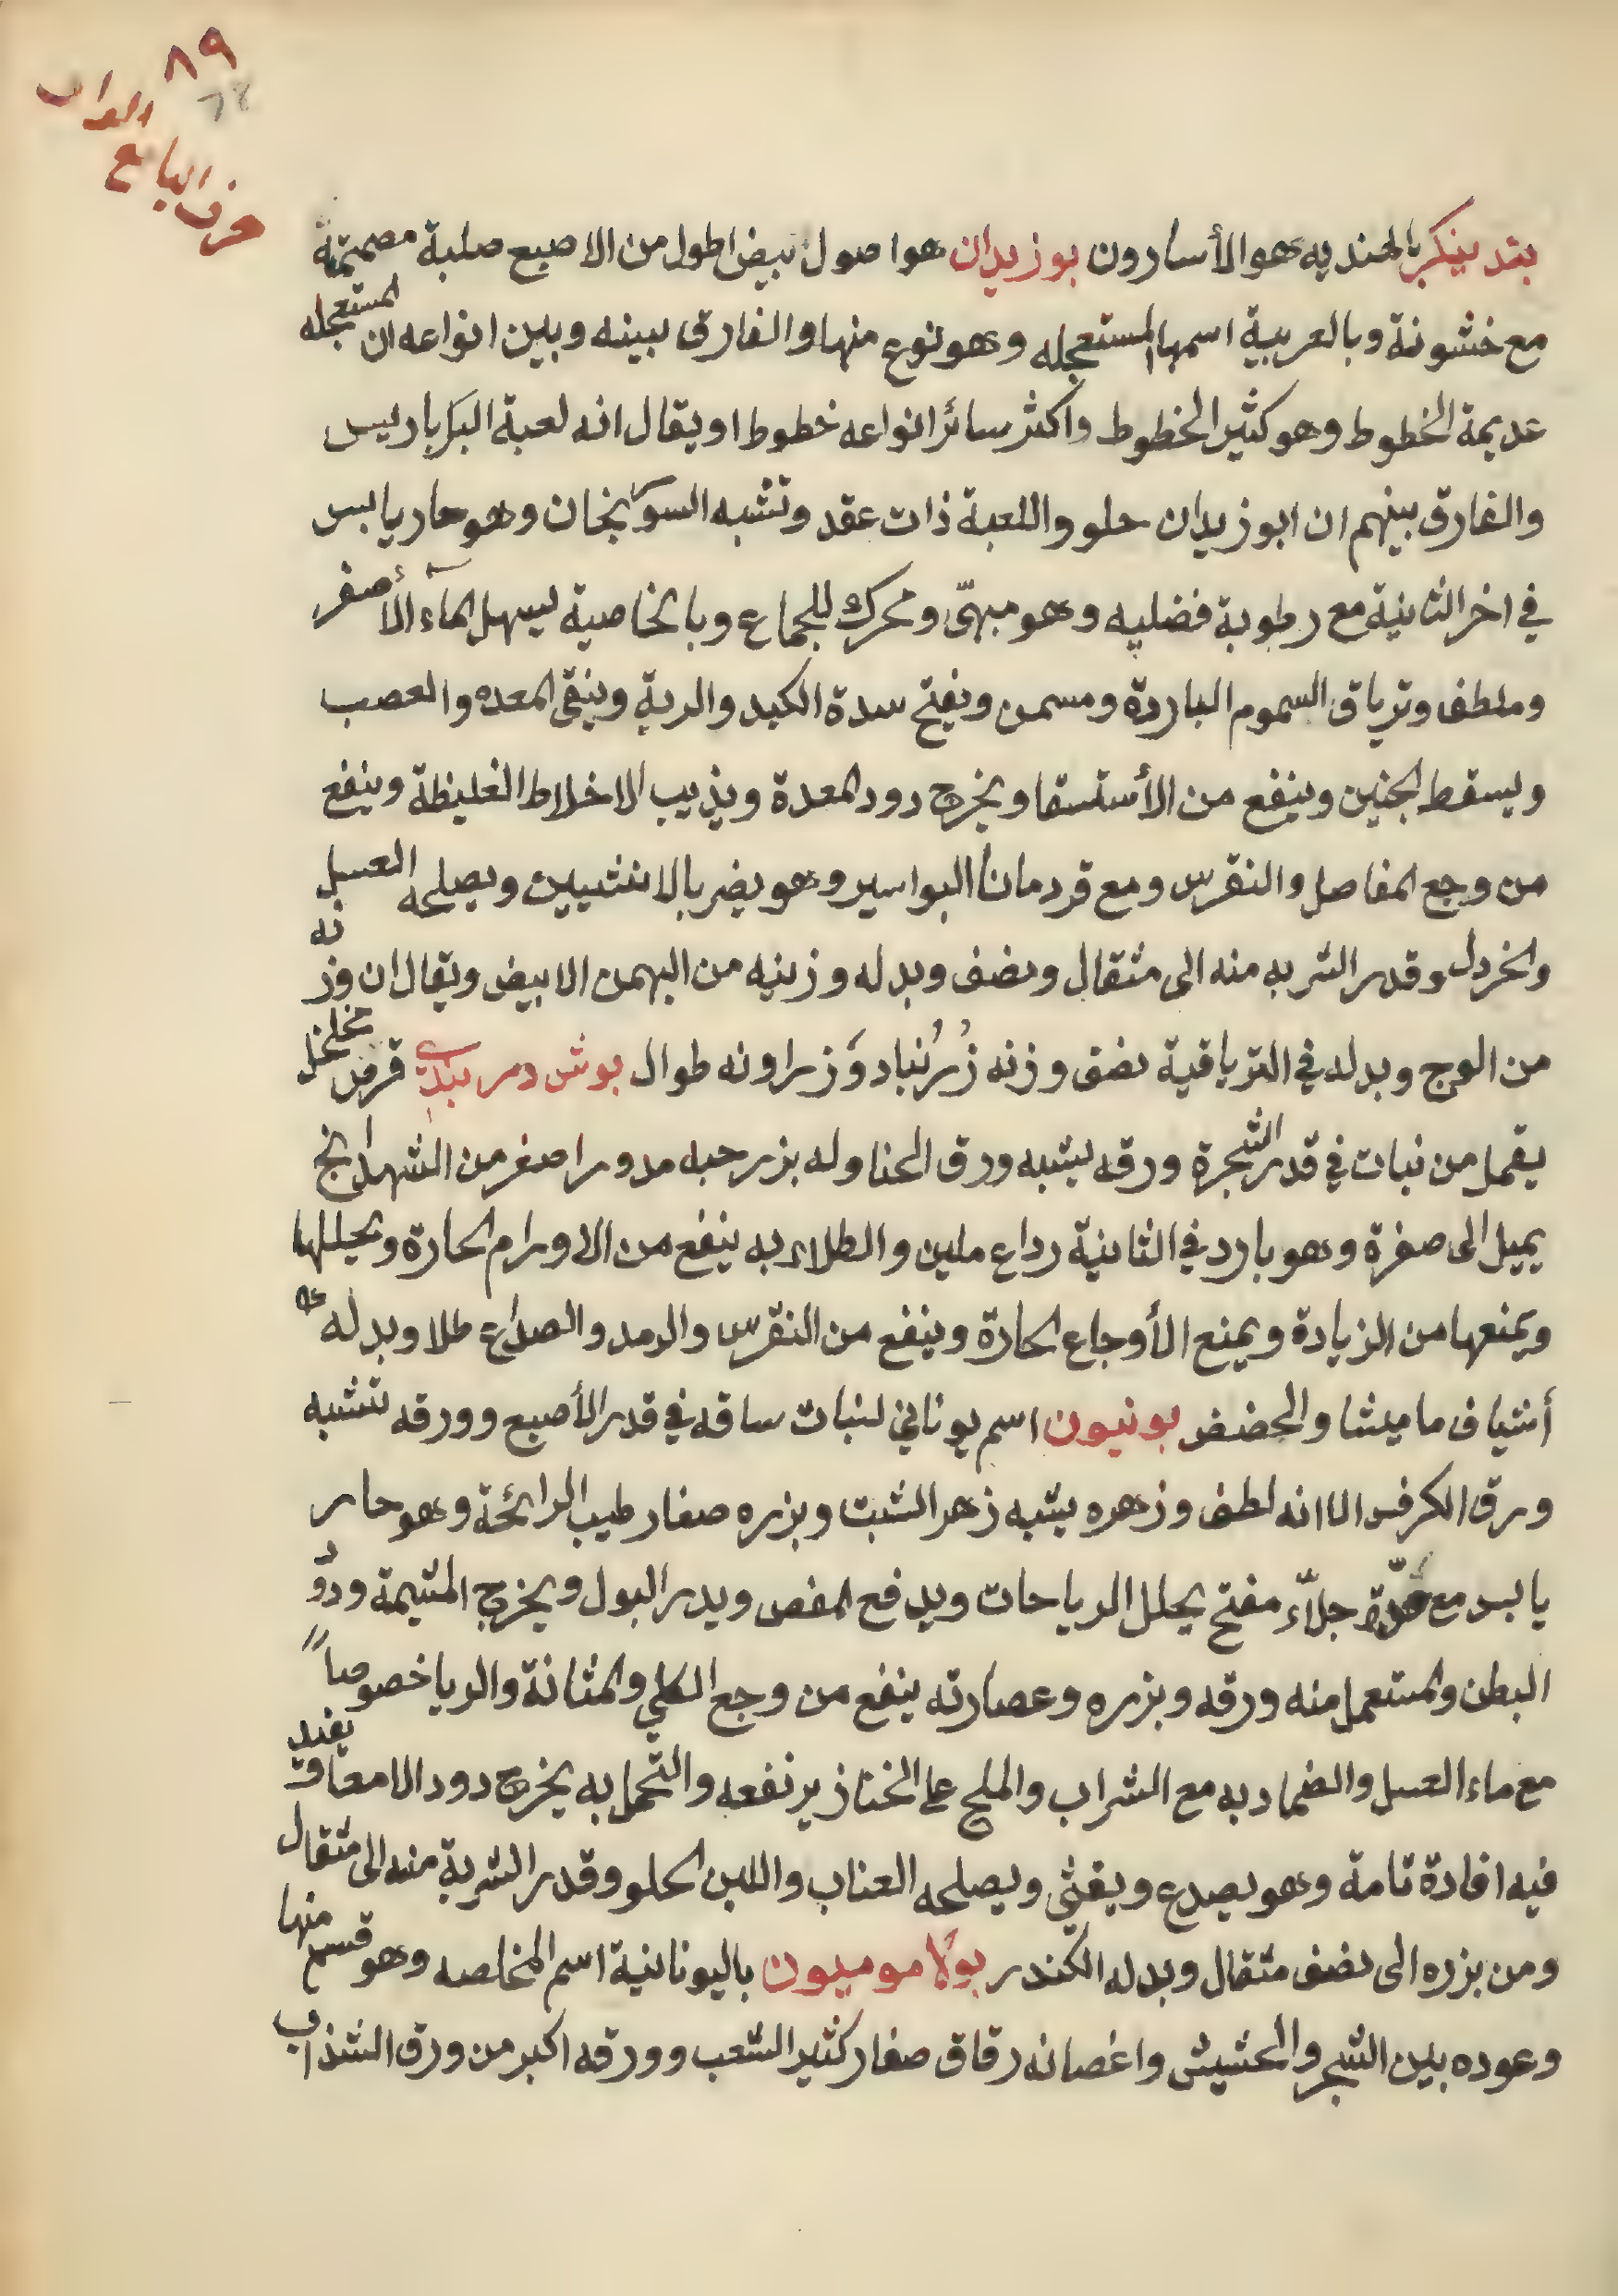 ٨٩
٦٤
حرف الباء مع الواو
بتدبينكر بالهنديه هو الأسارون بوزيدان هو اصول بيض اطول من الاصبع صلبة مصمتة
مع خشونة وبالعربية اسمها المستعجله وهو نوع منها والفارق بينه وبين انواعه ان المستعجله
عديمة الخطوط وهو كثير الخطوط واكثر سائر انواعه خطوطا ويقال انه لعبة البربارليس
والفارق بينهم ان ابوزيدان حلو واللعبة ذات عقد وتشبه السورنجان وهو حار يابس
في اخر الثانية مع رطوبة فضليه وهو مبهّى ومحرك للجماع وبالخاصية يسهل الماء الأصفر
وملطف وترياق السموم الباردة ومسمن ويفتح سدة الكبد والرية وينقى المعده والعصب
ويسقط الجنين وينفع من الأستسقا ويخرج دود المعدة ويذيب الاخلاط الغليظة وينفع
من وجع المفاصل والنقرس ومع قردمانا البواسير وهو يضر بالانثيين ويصلحه العسل
والخردل وقدر الشربه منه الى مثقال ونصف وبدله وزنيه من البهمن الابيض ويقال ان وزنه
من الوج وبدله في الترياقية نصف وزنه زُرُنباد وَزراونه طوال بوش دربندي قرص مخلخل
يقمل من نبات في قدر الشجرة ورقه يشبه ورق الحنا وله بزر حبه مدور اصغر من الشهدانج
يميل الى صفرة وهو بارد في الثانية رداع ملين والطلاء به ينفع من الاورام الحارة ويحللها
ويمنعها من الزيادة ويمنع الأوجاع الحادة وينفع من النقرس والرمد والصداع طلا وبدله عه
أشياف ماميثا والحضض بونيون اسم يوناني لنبات ساقه في قدر الأصبع وورقه تشبه
ورق الكرفس الا انه لطف وزهره يشبه زهر الشبت وبزره صغار طيب الرائحة وهو حار
يابس مع حدّة جلاّء مفتح يحلل الرياحات ويدفع المغص ويدر البول ويخرج المشيمة ودُودَ
البطن والمستعمل منه ورقه وبزره وعصارته ينفع من وجع الكلي والمثانة والريا خصوصاً
مع ماء العسل والضماد به مع الشراب والملح على الخنازير نفعه والتحمل به يخرج دود الامعا ويفيد
فيه افادة تامة وهو يصدع ويغثي ويصلحه العناب واللبن الحلو وقدر الشربة منه الى مثقال
ومن بزره الى نصف مثقال وبدله الكندر بولاموميون باليونانية اسم المخلصه وهو قسم منها
وعوده بين الشجر والحشيش واغصانه رقاق صغار كثير الشعب وورقه اكبر من ورق الشذاب